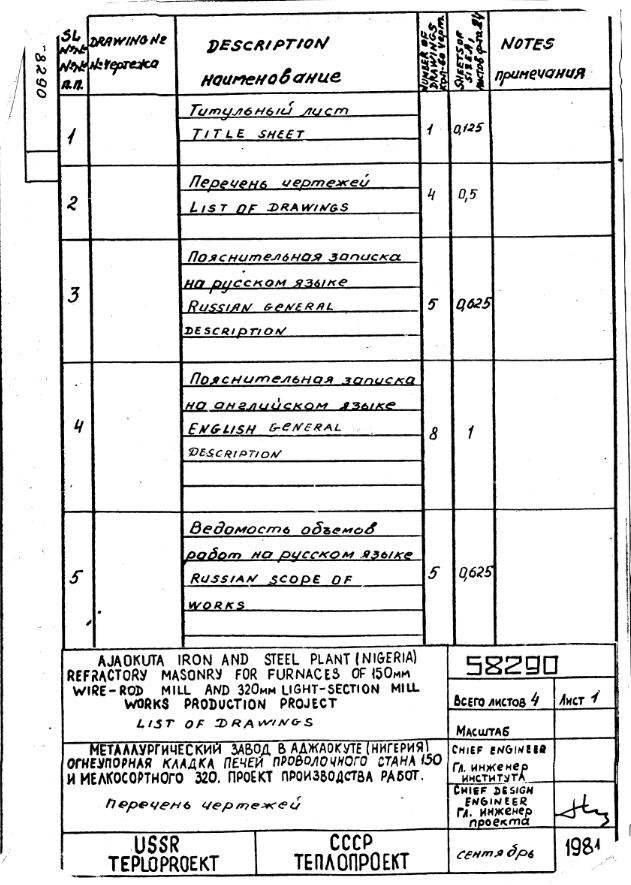 -8290
SL DRAWING № DESCRIPTION NUMBER OF DRAWINGS SHEETS OF SIZE A1 NOTES
№№ № чертежа наименование кол-во черт. примечания
п.п.
1 Титульный лист 1 0,125
TITLE SHEET
2 Перечень чертежей 4 0,5
LIST OF DRAWINGS
3 Пояснительная записка
на русском языке
RUSSIAN GENERAL 5 0,625
DESCRIPTION
Пояснительная записка
на английском языке
4 ENGLISH GENERAL 8 1
DESCRIPTION
Ведомость объемов
работ на русском языке
5 RUSSIAN SCOPE OF 5 0,625
WORKS
AJAOKUTA IRON AND STEEL PLANT (NIGERIA)
REFRACTORY MASONRY FOR FURNACES OF 150мм
WIRE-ROD MILL AND 320мм LIGHT-SECTION MILL
WORKS PRODUCTION PROJECT
LIST OF DRAWINGS
58290
Всего листов 4 Лист 1
МАСШТАБ
МЕТАЛЛУРГИЧЕСКИЙ ЗАВОД В АДЖАОКУТЕ (НИГЕРИЯ)
ОГНЕУПОРНАЯ КЛАДКА ПЕЧЕЙ ПРОВОЛОЧНОГО СТАНА 150
И МЕЛКОСОРТНОГО 320. ПРОЕКТ ПРОИЗВОДСТВА РАБОТ.
Перечень чертежей
CHIEF ENGINEER
Гл. инженер
института
CHIEF DESIGN
ENGINEER
Гл. инженер
проекта
USSR СССР
TEPLOPROEKT ТЕПЛОПРОЕКТ
сентябрь 1981